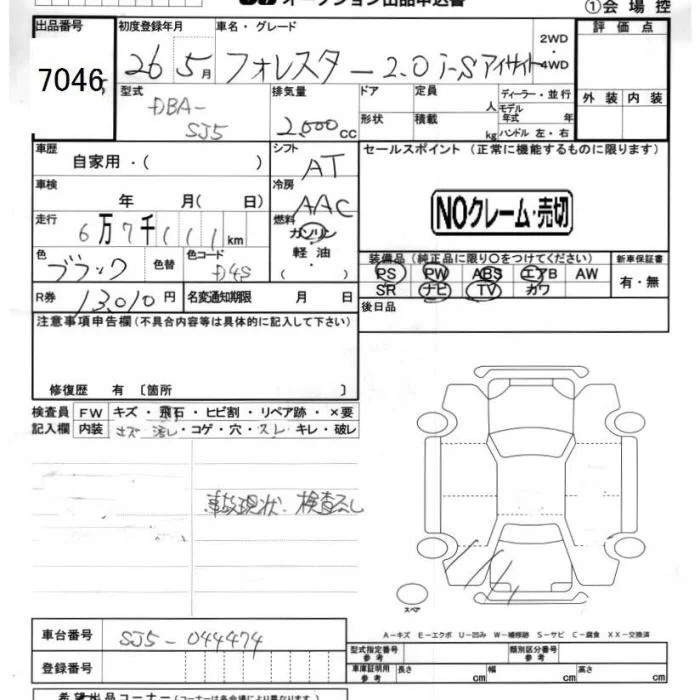 オークション出品申込書
①会場控
出品番号 初度登録年月 車名・グレード 評価点
7046 26 5月 フォレスター 2.0 i-S アイサイト 2WD・4WD
型式 排気量 ドア 定員 ディーラー・並行 外装 内装
DBA- 人 モデル年式 年
SJ5 2,000cc 形状 積載 kg ハンドル 左・右
車歴 シフト セールスポイント (正常に機能するものに限ります)
自家用・( ) AT
車検 冷房
年 月( 日) AAC NOクレーム・売切
走行 燃料
6万7千111km ガソリン
色 色替 色コード 軽油 装備品(純正品に限り○をつけてください) 新車保証書
ブラック D4S ( ・ ) PS PW ABS エアB AW 有・無
R券 13,010円 名変通知期限 月 日 SR ナビ TV カワ
注意事項申告欄(不具合内容等は具体的に記入して下さい) 後日品
修復歴 有〔箇所 〕
検査員 FW キズ・飛石・ヒビ割・リペア跡・×要
記入欄 内装 キズ・汚レ・コゲ・穴・スレ・キレ・破レ
事故現状・検査なし
スペア
A-キズ E-エクボ U-凹み W-補修跡 S-サビ C-腐食 XX-交換済
車台番号 SJ5-044474 型式指定番号 参考 類別区分番号 参考
登録番号 車庫証明用 参考 長さ cm 幅 cm 高さ cm
希望出品コーナー(コーナーは各会場により異なります)